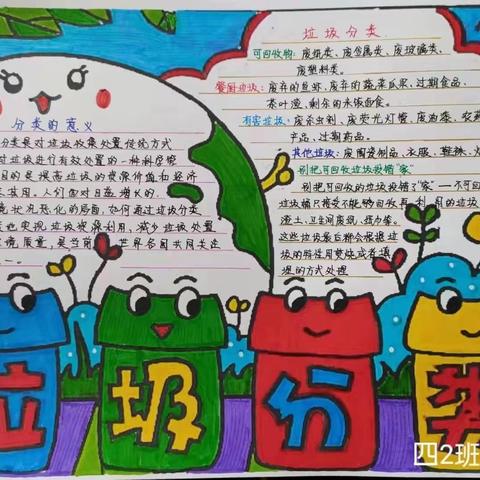 垃圾分类
可回收物：废纸类、废金属类、废玻璃类、
废塑料类。
餐厨垃圾：废弃的鱼虾、废弃的蔬菜瓜果、过期食品、
茶叶渣、剩余的米饭面食。
有害垃圾：废杀虫剂、废荧光灯管、废油漆、农药
产品、过期药品。
其他垃圾：废陶瓷制品、衣服、鞋袜、
别把可回收垃圾放错“家”
别把可回收的垃圾放错了“家”—不可回
垃圾桶只接受不能够回收再利用的垃圾
渣土、卫生间废纸、纸巾等。
这些垃圾最后都会根据垃
圾的特性用焚烧或者填
埋的方式处理
分类的意义
分类是对垃圾收集处置传统方式
对垃圾进行有效处置的一种科学管
目的是提高垃圾的资源价值和经济
尽其用。人们面对日益增长的
境状况恶化的局面，如何通过垃圾分类
度地实现垃圾资源利用，减少垃圾处置
环境质量，是当前世界各国共同关注
一。
垃
圾
分
类
四2班